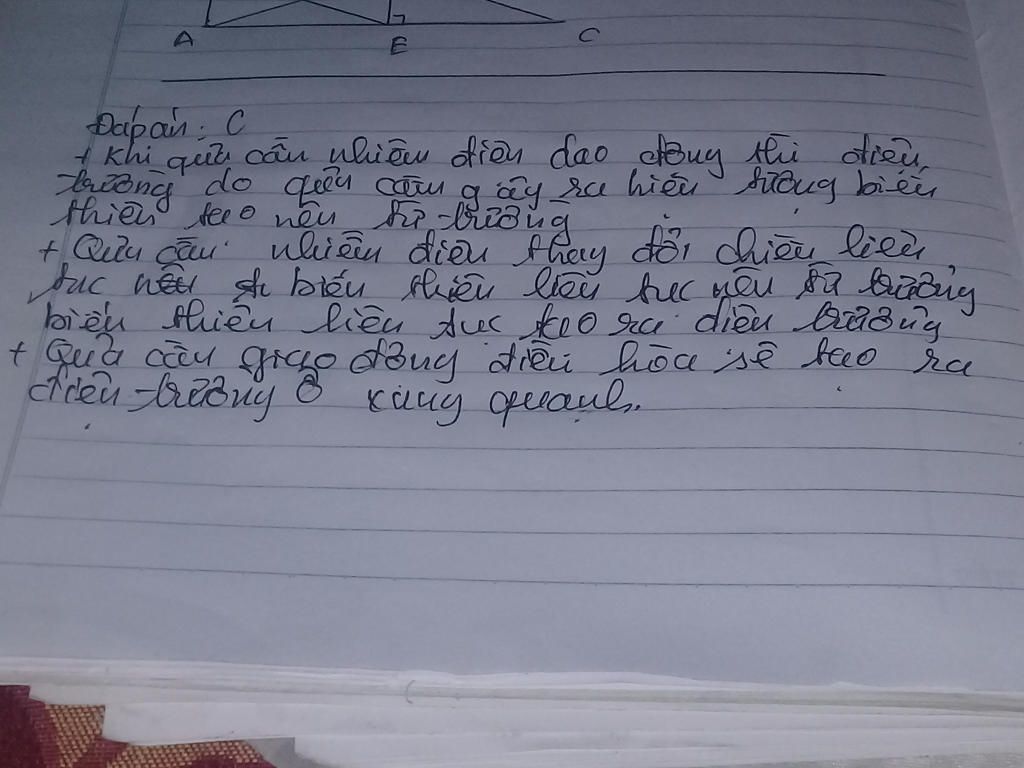 A E C
Đáp án: C
+ Khi quả cầu nhiễm điện dao động thì điện
trường do quả cầu gây ra hiện tượng biến
thiên tạo nên từ trường
+ Quả cầu nhiễm điện thay đổi chiều liên
tục nên biến thiên liên tục nên từ trường
biến thiên liên tục tạo ra điện trường
+ Quả cầu giao động điều hòa sẽ tạo ra
điện trường ở xung quanh.